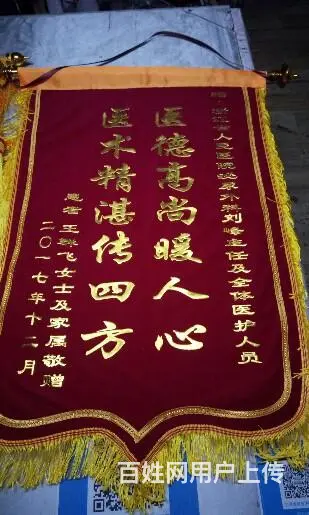 赠：浙江省人民医院泌尿外科刘峰主任及全体医护人员
医德高尚暖人心
医术精湛传四方
患者 王飞女士及家属敬赠
二〇一七年十二月
百姓网用户上传